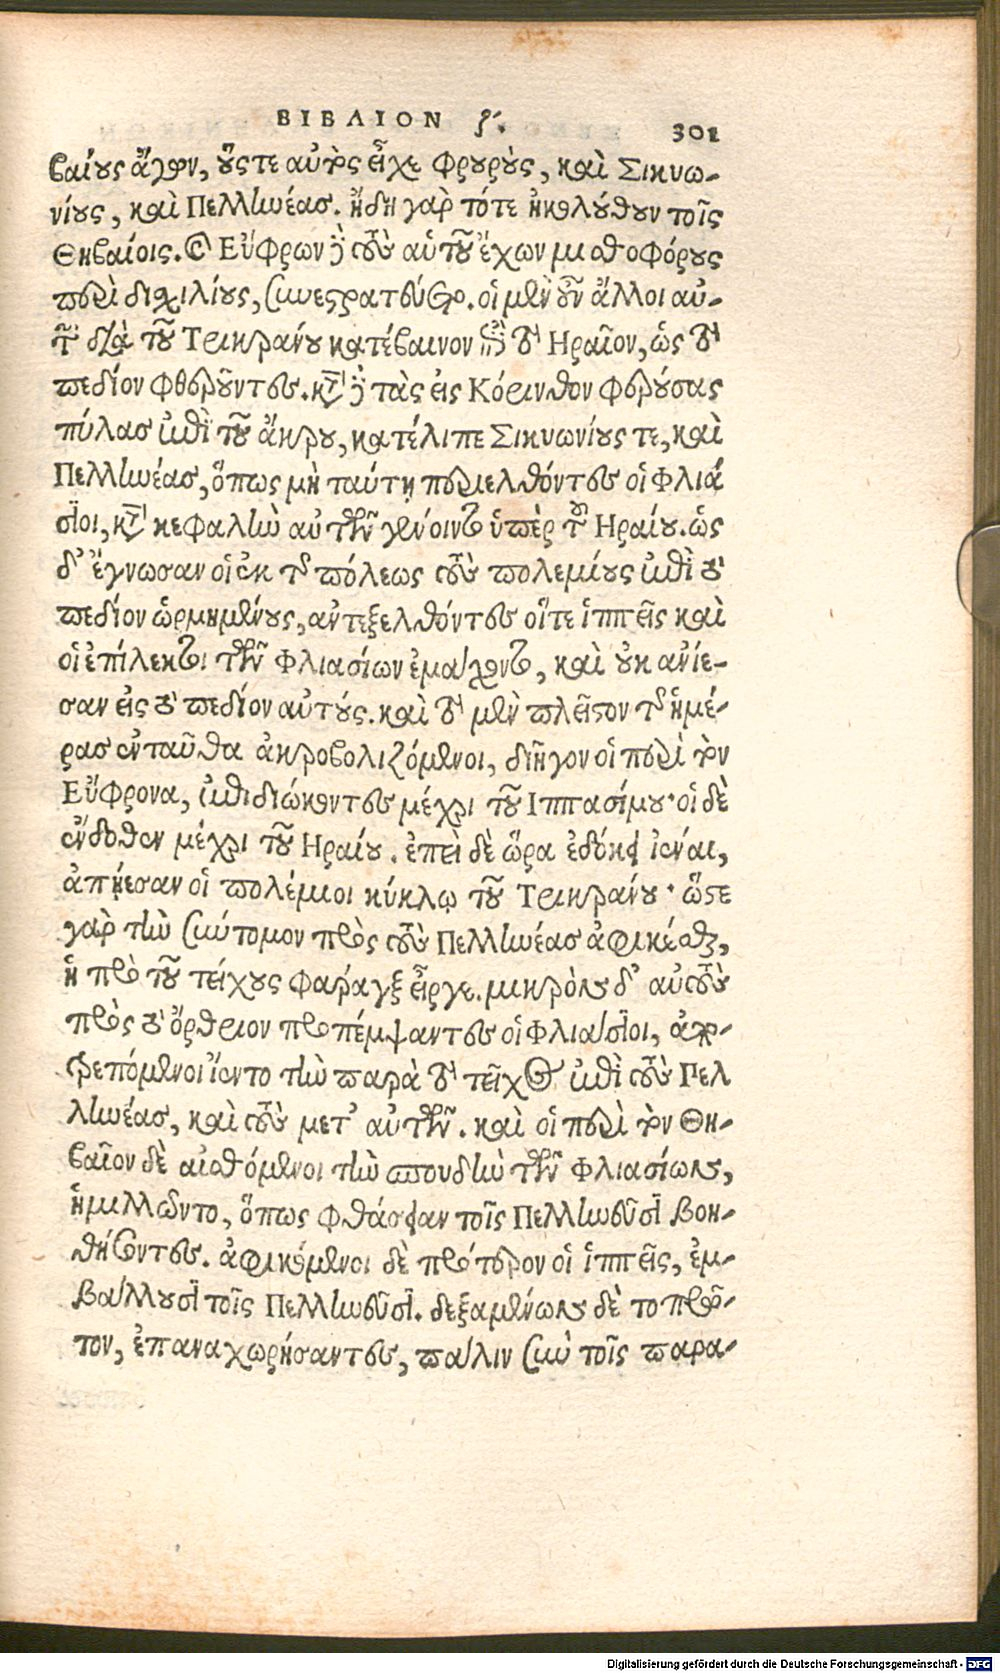 ΒΙΒΛΙΟΝ ζ΄. 301
βαίους ἄγων, οὕς τε αὐτὸς εἶχε φρουρούς, καὶ Σικυω-
νίους, καὶ Πελληνέας. ἤδη γὰρ τότε ἠκολούθουν τοῖς
Θηβαίοις. καὶ Εὔφρων δὲ τοὺς αὑτοῦ ἔχων μισθοφόρους
περὶ διχιλίους, συνεστρατεύετο. οἱ μὲν οὖν ἄλλοι αὐ-
τῶν διὰ τοῦ Τρικράνου κατέβαινον ἐπὶ τὸ Ηραῖον, ὡς τὸ
πεδίον φθεροῦντες. κατὰ δὲ τὰς εἰς Κόρινθον φερούσας
πύλας ἐπὶ τοῦ ἄκρου, κατέλιπε Σικυωνίους τε, καὶ
Πελληνέας, ὅπως μὴ ταύτῃ περιελθόντες οἱ Φλιά
σιοι, κατὰ κεφαλὴν αὐτῶν γένοιντο ὑπὲρ τοῦ Ηραίου. ὡς
δ' ἔγνωσαν οἱ ἐκ τῆς πόλεως τοὺς πολεμίους ἐπὶ τὸ
πεδίον ὡρμημένους, ἀντεξελθόντες οἵτε ἱππεῖς καὶ
οἱ ἐπίλεκτοι τῶν Φλιασίων ἐμάχοντο, καὶ οὐκ ἀνίε-
σαν εἰς τὸ πεδίον αὐτούς. καὶ τὸ μὲν πλεῖστον τῆς ἡμέ-
ρας ἐνταῦθα ἀκροβολιζόμενοι, διῆγον οἱ περὶ τὸν
Εὔφρονα, ἐπιδιώκοντες μέχρι τοῦ Ιππασίμου· οἱ δὲ
ἔνδοθεν μέχρι τοῦ Ηραίου. ἐπεὶ δὲ ὥρα ἐδόκει ἰέναι,
ἀπῄεσαν οἱ πολέμιοι κύκλῳ τοῦ Τρικράνου· ὥστε
γὰρ τὴν σύντομον πρὸς τοὺς Πελληνέας ἀφικέσθαι,
ἡ πρὸ τοῦ τείχους φάραγξ εἶργε. μικρὸν δ' αὐτοὺς
πρὸς τὸ ὄρθριον προπέμψαντες οἱ Φλιάσιοι, ἀπο-
τρεπόμενοι ἵεντο τὴν παρὰ τὸ τεῖχος ἐπὶ τοὺς Πελ
ληνέας, καὶ τοὺς μετ' αὐτῶν. καὶ οἱ περὶ τὸν Θη-
βαῖον δὲ αἰσθόμενοι τὴν σπουδὴν τῶν Φλιασίων,
ἡμιλλῶντο, ὅπως φθάσειαν τοῖς Πελληνεῦσι βοη-
θήσοντες. ἀφικόμενοι δὲ πρότερον οἱ ἱππεῖς, ἐμ-
βάλλουσι τοῖς Πελληνεῦσι. δεξαμένων δὲ το πρῶ-
τον, ἐπαναχωρήσαντες, πάλιν σὺν τοῖς παρα-
Digitalisierung gefördert durch die Deutsche Forschungsgemeinschaft - DFG